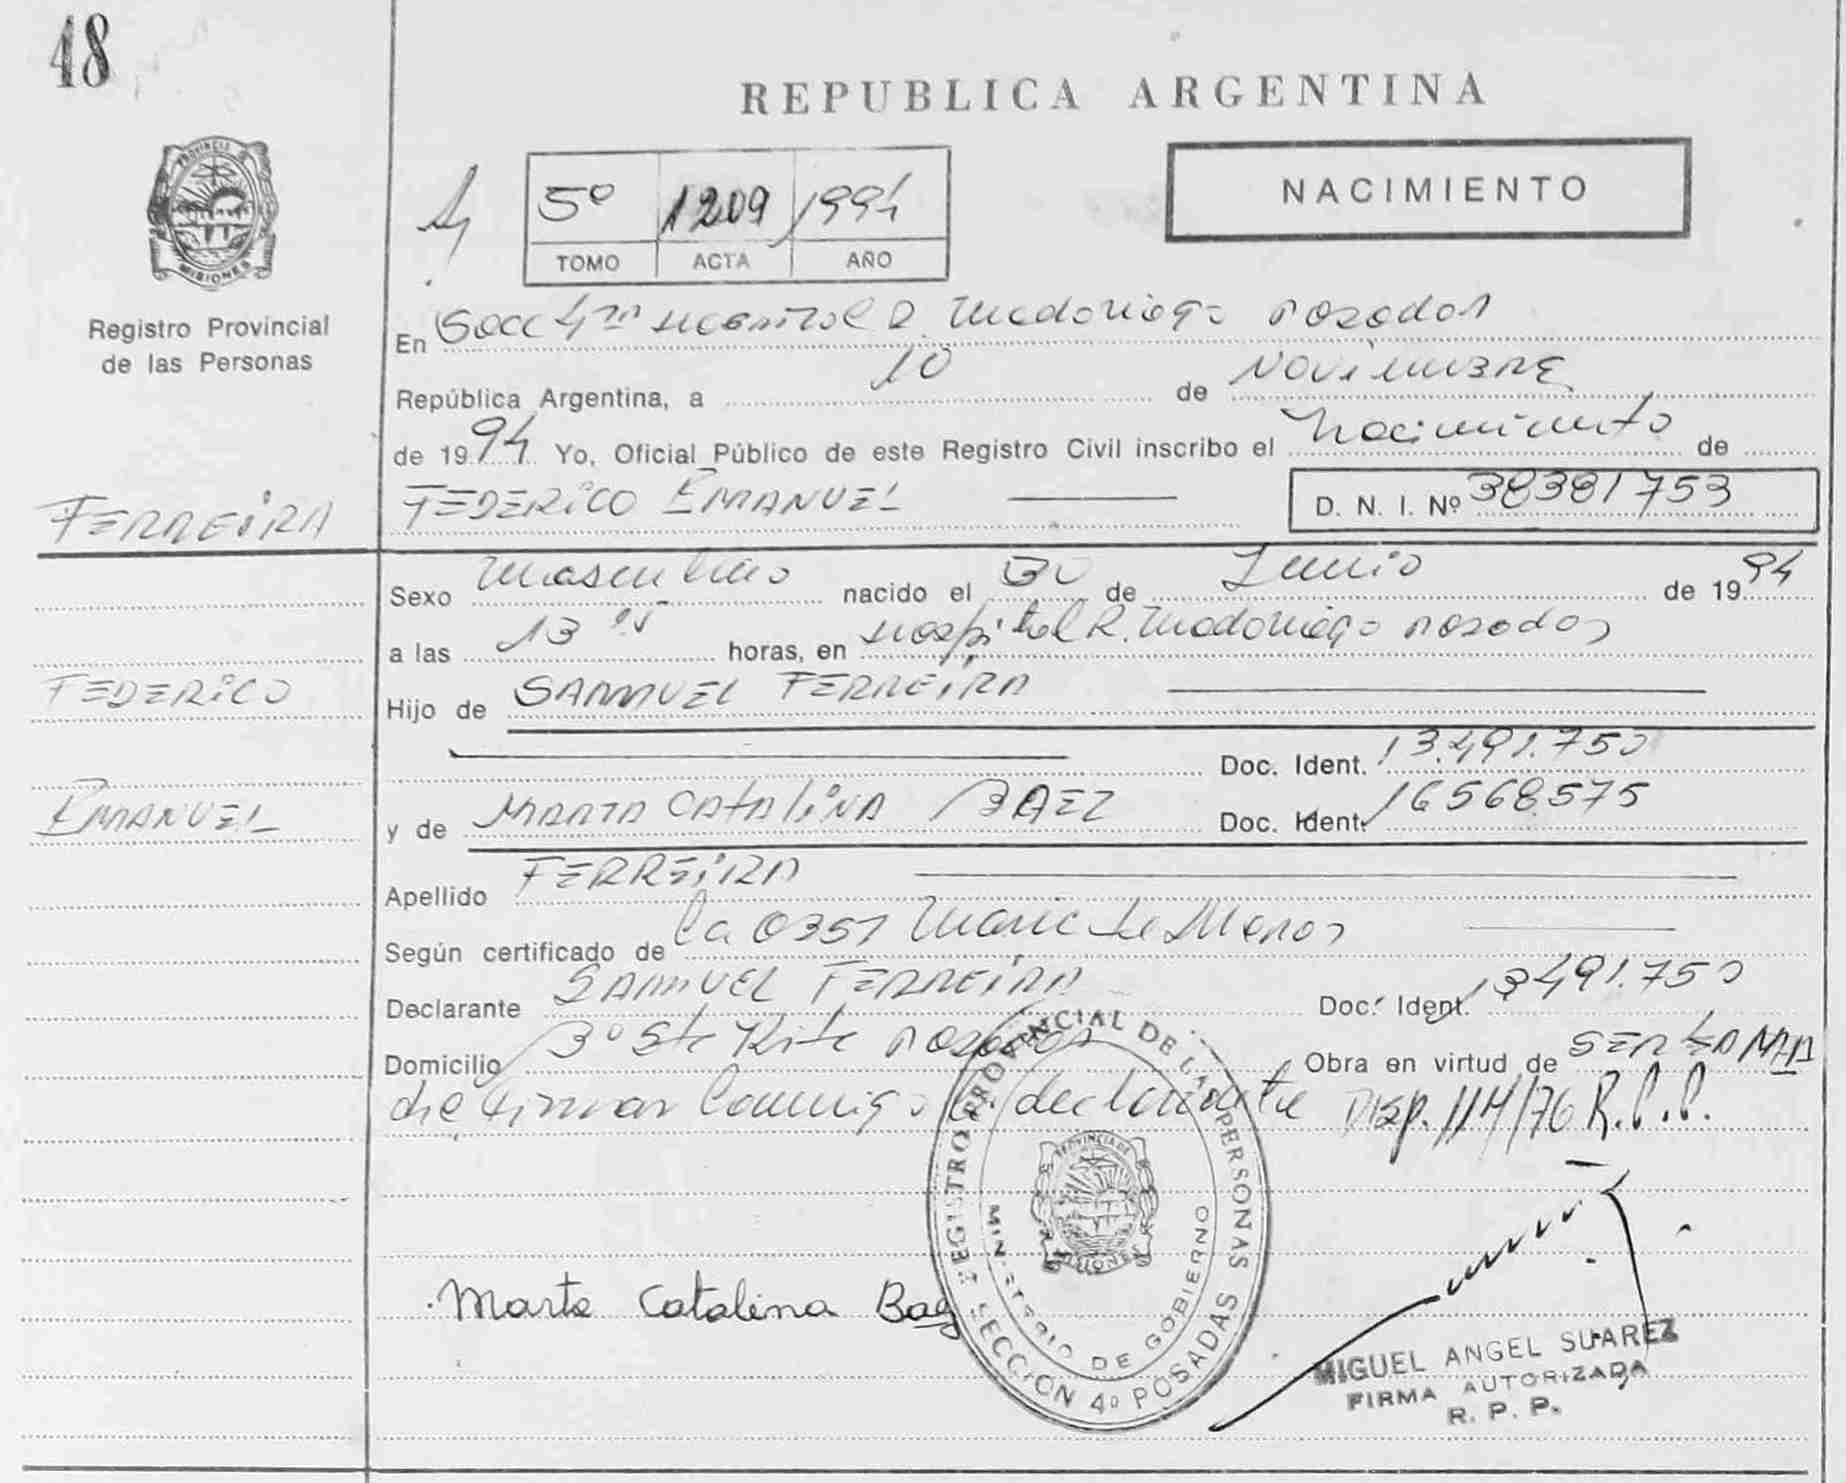 48
REPUBLICA ARGENTINA
PROVINCIA DE
MISIONES
5º 1209 1994
TOMO ACTA AÑO
NACIMIENTO
Registro Provincial
de las Personas
En Secc 4ta Hospital R. Madariaga Posadas
República Argentina, a 10 de Noviembre
de 1994 Yo, Oficial Público de este Registro Civil inscribo el Nacimiento de
FERREIRA
FEDERICO EMANUEL
D. N. I. Nº 38381753
Sexo Masculino nacido el 30 de Junio de 1994
a las 13 horas, en Hospital R. Madariaga Posadas
FEDERICO
Hijo de SAMUEL FERREIRA
Doc. Ident. 13.491.750
EMANUEL
y de MARTA CATALINA BAEZ Doc. Ident. 16568575
Apellido FERREIRA
Según certificado de la 0351
Declarante SAMUEL FERREIRA Doc. Ident. 13491.750
Domicilio Bº Sta Rita Posadas Obra en virtud de SER LA MAD
de firman conmigo declarante Disp. 114/76 R.P.P.
REGISTRO PROVINCIAL DE LAS PERSONAS
SECCION 4º POSADAS
MINISTERIO DE GOBIERNO
PROVINCIA DE
MISIONES
Marta Catalina Baez
MIGUEL ANGEL SUAREZ
FIRMA AUTORIZADA
R. P. P.